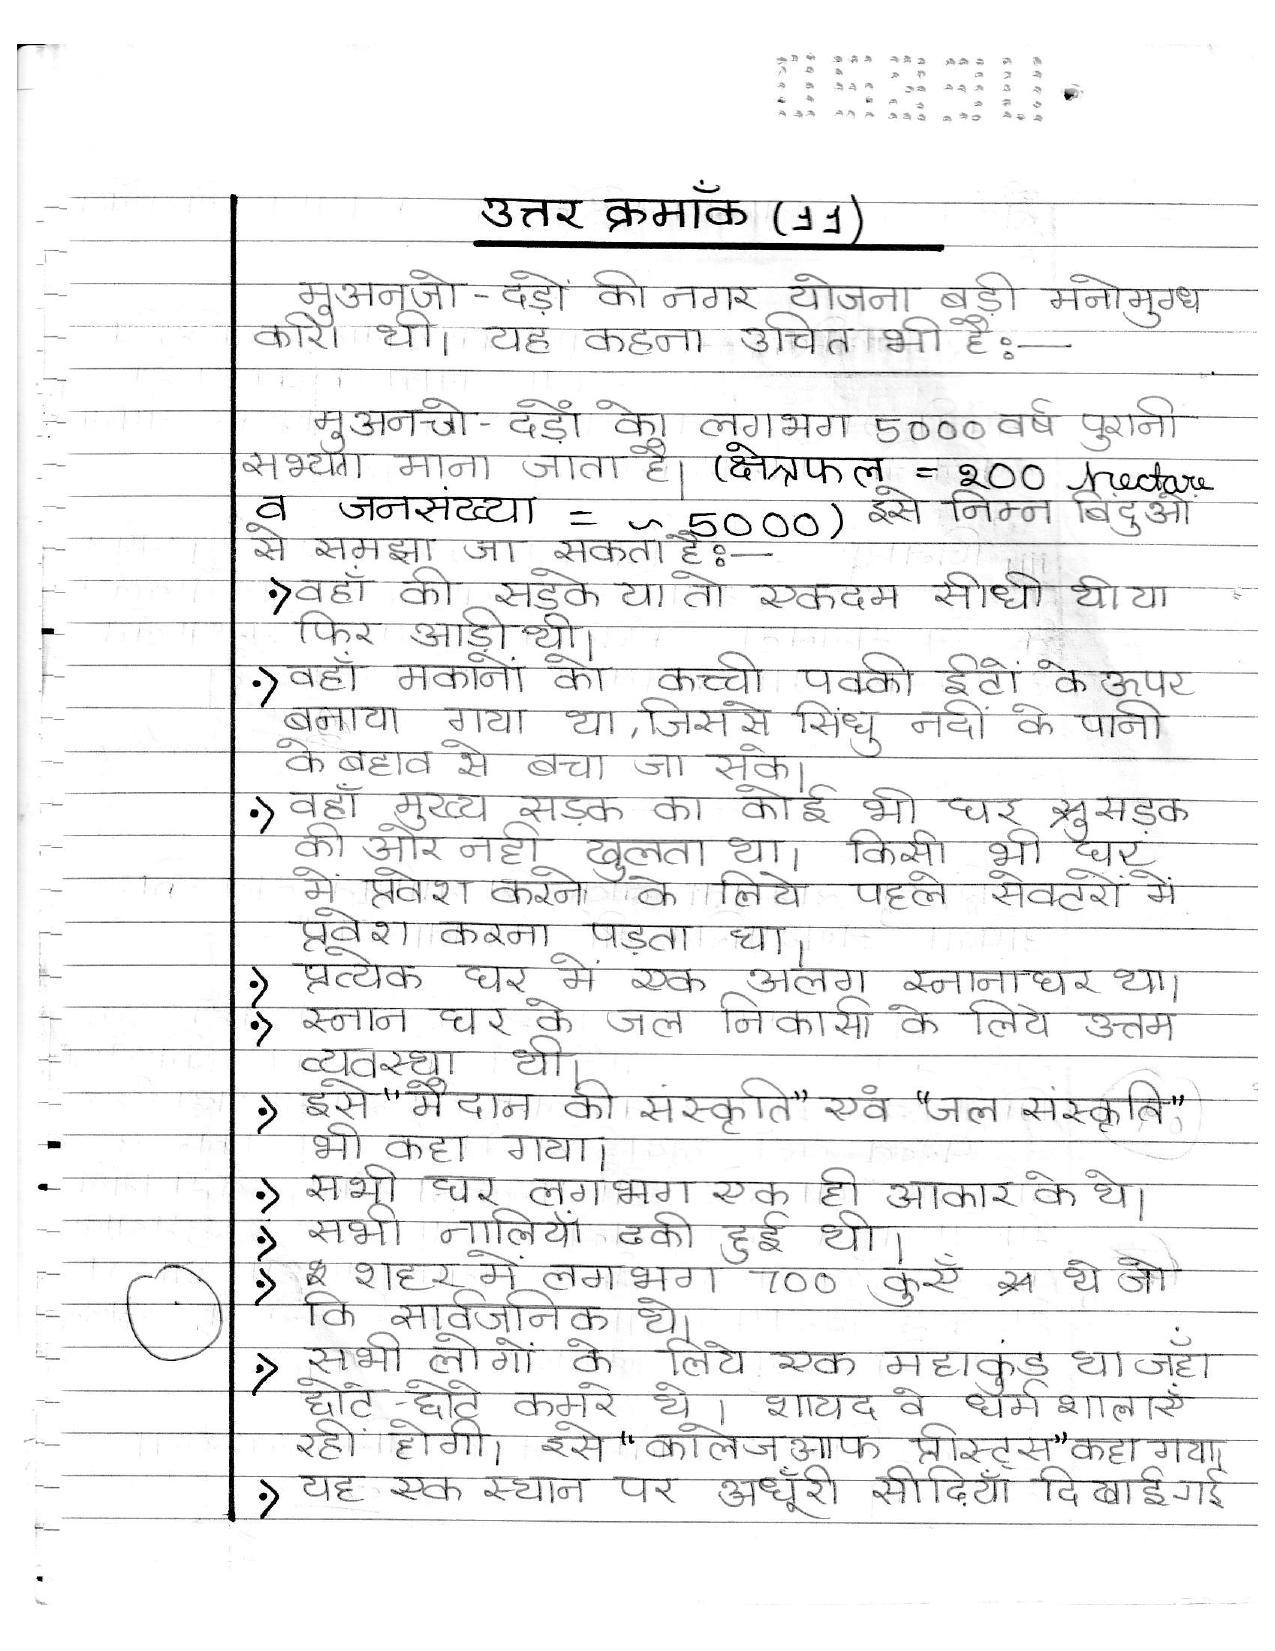 उत्तर क्रमाँक (11)
मुअनजो-दड़ों की नगर योजना बड़ी मनोमुग्ध
कारी थी। यह कहना उचित भी है:—
मुअनजो-दड़ों को लगभग 5000 वर्ष पुरानी
सभ्यता माना जाता है। (क्षेत्रफल = 200 hectare
व जनसंख्या = ~ 5000) इसे निम्न बिंदुओं
से समझा जा सकता है:—
वहाँ की सड़के या तो एकदम सीधी थी या
फिर आड़ी थी।
वहाँ मकानों को कच्ची पक्की ईटों के ऊपर
बनाया गया था, जिससे सिंधु नदी के पानी
के बहाव से बचा जा सके।
वहाँ मुख्य सड़क का कोई भी घर सड़क
की ओर नही खुलता था। किसी भी घर
में प्रवेश करने के लिये पहले सेक्टरों में
प्रवेश करना पड़ता था।
प्रत्येक घर में एक अलग स्नानाघर था।
स्नान घर के जल निकासी के लिये उत्तम
व्यवस्था थी।
इसे "मैदान की संस्कृति" एवं "जल संस्कृति"
भी कहा गया।
सभी घर लगभग एक ही आकार के थे।
सभी नालियाँ ढकी हुई थी।
शहर में लगभग 700 कुएँ थे जो
कि सार्वजनिक थे।
सभी लोगों के लिये एक महाकुंड था जहाँ
छोटे-छोटे कमरे थे। शायद वे धर्मशालाएँ
रही होगी। इसे "कॉलेज आफ प्रीस्ट्स" कहा गया।
यह एक स्थान पर अधूँरी सीढ़ियाँ दिखाई गई